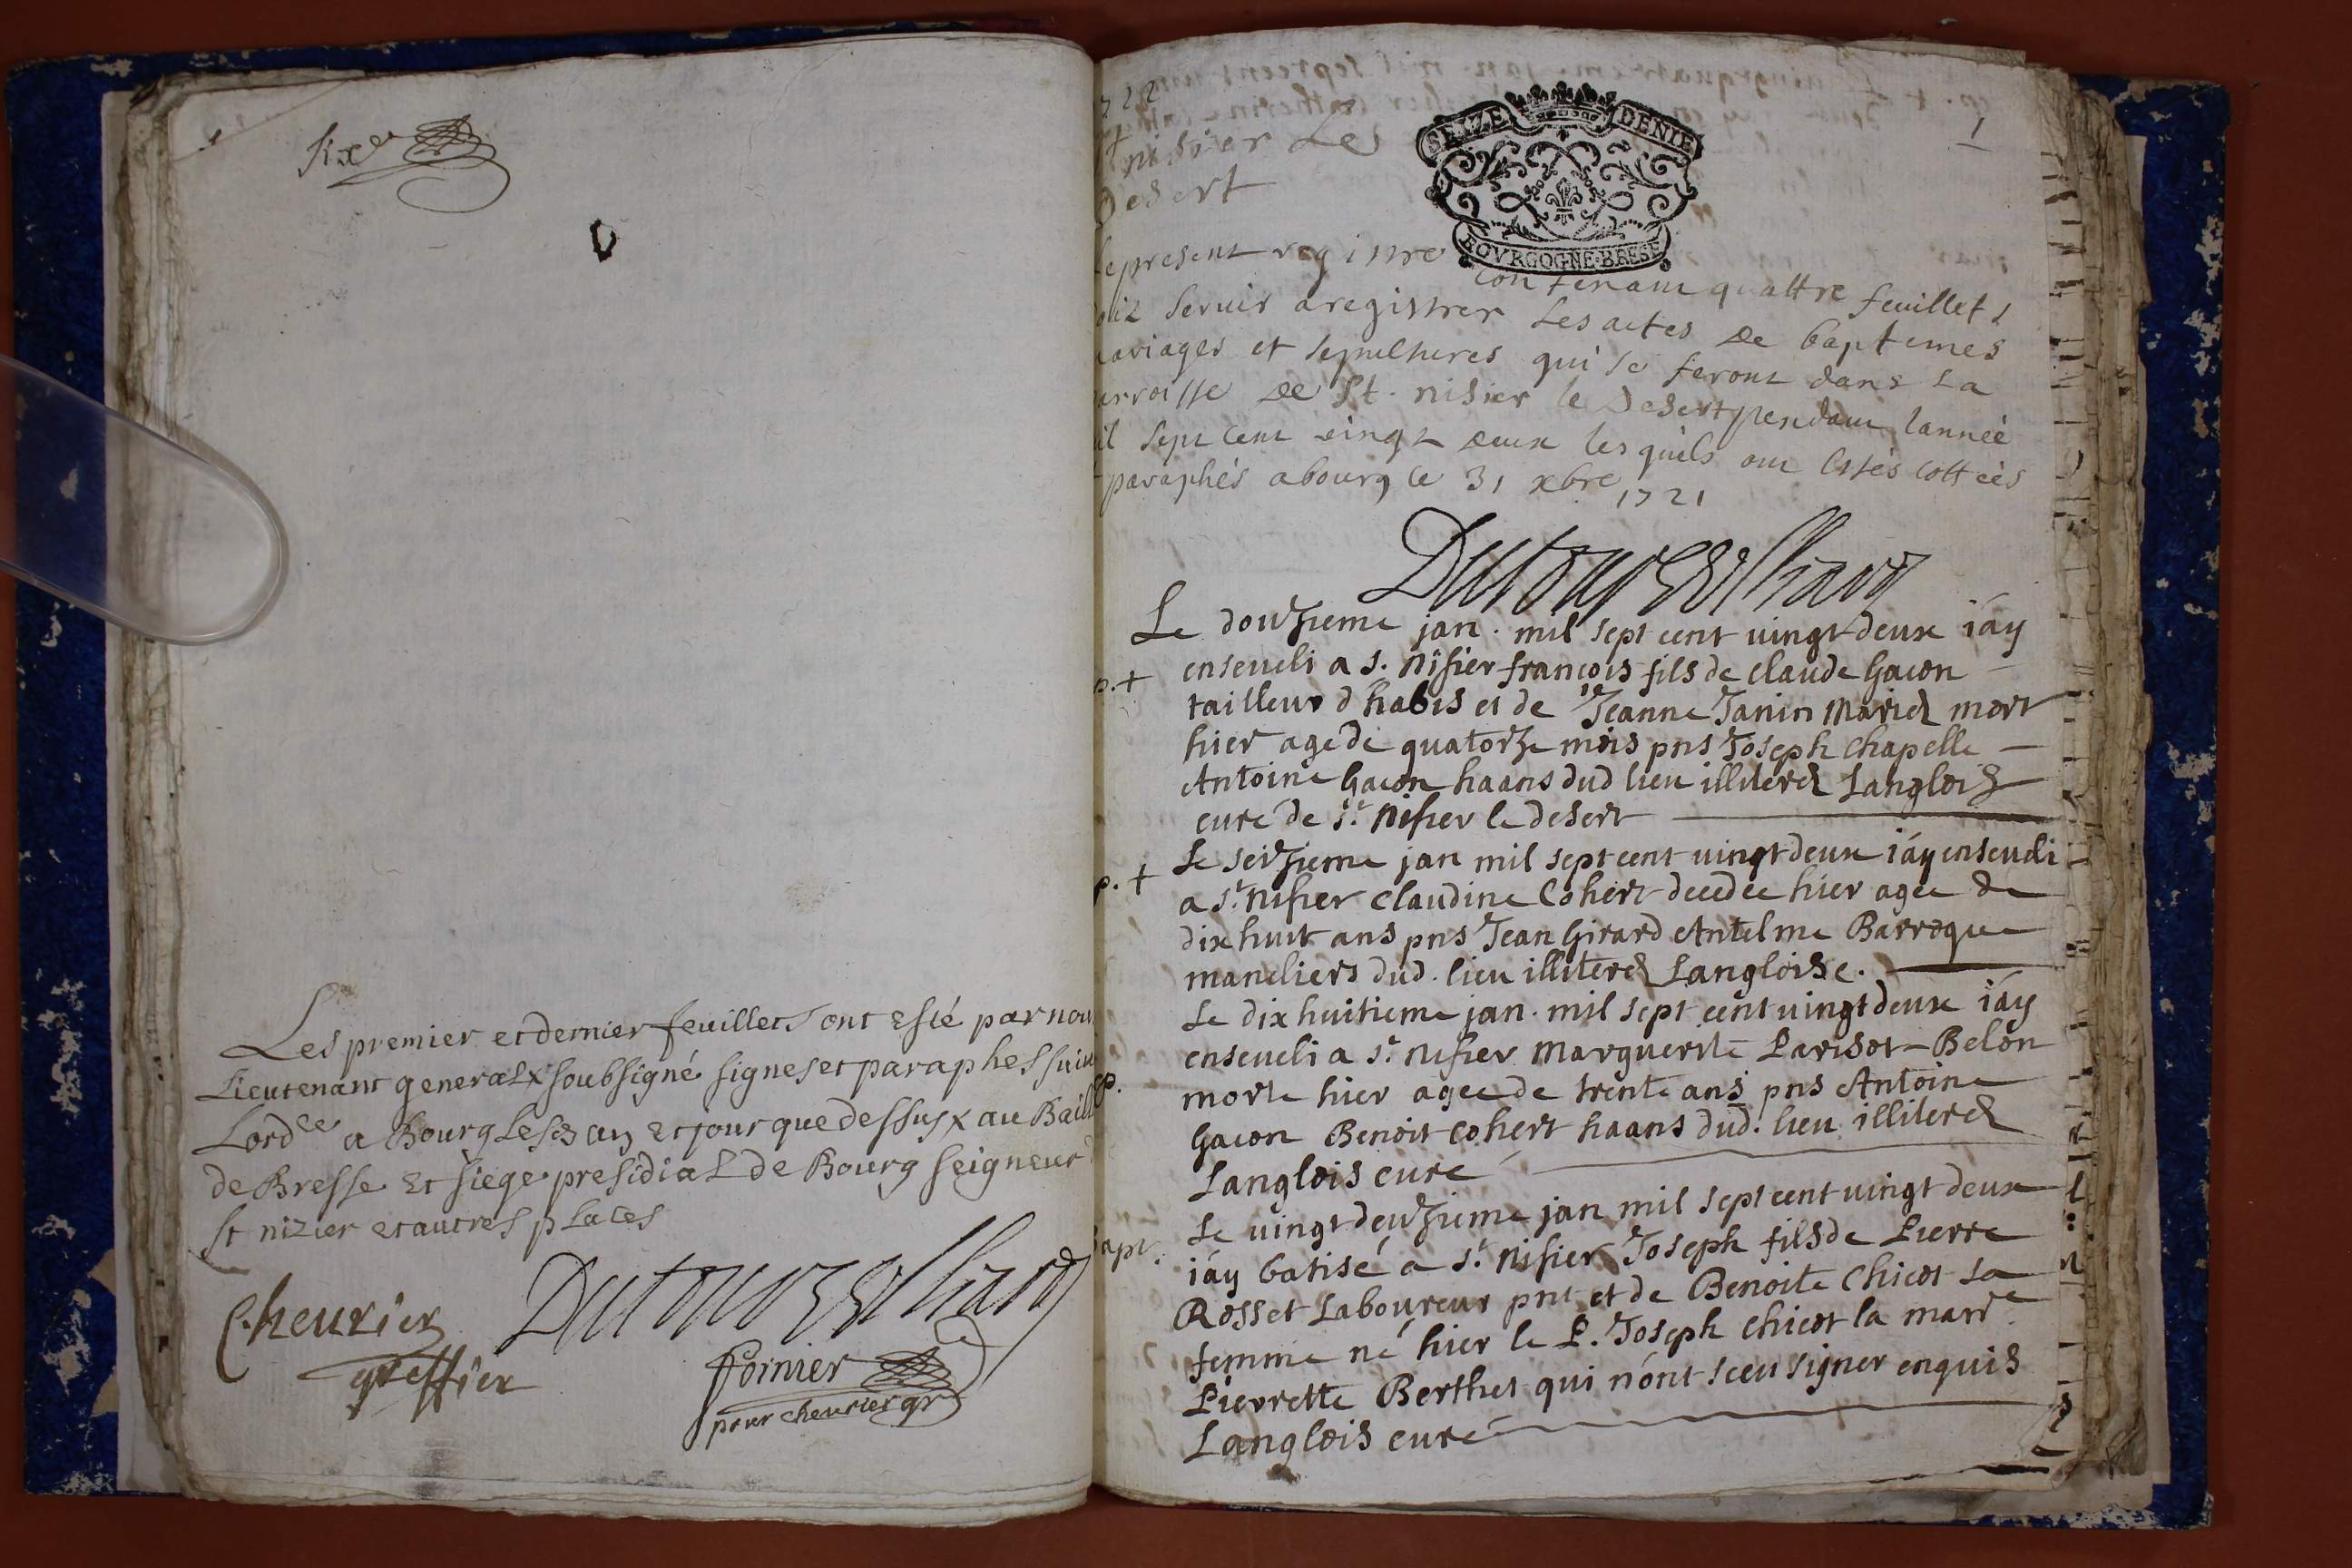 six.e
Les premier et dernier feuillets ont esté par nou
Lieutenant general x soubsigné signes et paraphes suiv
Lord.ce a Bourg lesd an et jour que dessus x au Baill
de Bresse et siege presidial de Bourg seigneur
st nizier et autres places
Cheurier
greffier
fornier
pour cheurier gr
722
St nisier Le
Desert
1
SEIZE DENIE
BOVRGOGNE·BRESE
Le present registre contenant quattre feuillets
doit servir a registrer les actes de baptemes
mariages et sepultures qui se feront dans la
parroisse de St. nisier le Desert pendant lanneé
mil sept cent vingt deux les quels ont estés cottéés
paraphés a bourg le 31 xbre 1721
Le douzieme jan. mil sept cent vingt deux i'ay
p. +
enseveli a s. Nisier françois fils de claude Gacon
tailleur d'habis et de Jeanne Janin Mariez mort
hier age de quatorze mois pns Joseph Chapelle
Antoine Gacon haans dud lieu illiterez Langlois
cure de s.t Nisier le desert
Le seizieme jan mil sept cent vingt deux i'ay enseveli
p. +
a s.t Nisier Claudine Cohert decedee hier agee de
dix huit ans pns Jean Girard Antelme Barroque
maneliers dud. lieu illiterez Langlois c.
Le dix huitieme jan. mil sept cent vingt deux i'ay
enseveli a s.t nisier Marguerite Parisot-Belon
p.
morte hier agee de trente ans pns Antoine
Gacon Benoit Cohert haans dud. lieu illiterez
Langlois cure
Le vingt deuzieme jan mil sept cent vingt deux
bapt.
i'ay batisé a s.t Nisier Joseph fils de Pierre
Rosset Laboureur pnt et de Benoite Chicot sa
femme né hier le P. Joseph Chicot la marr.e
Pierrette Berthet qui n'ont sceu signer enquis
Langlois cure